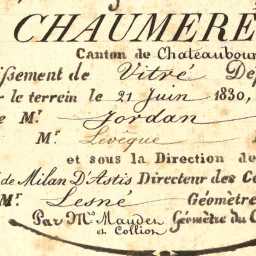 CHAUMERÉ
Canton de Chateaubour
issement de Vitré Dép
r le terrein le 21 Juin 1830,
e Mr. Jordan
Mr. Levêque
et sous la Direction de
de Milan D'Astis Directeur des Co
Mr. Lesné Géomètre
Par Mrs. Mauden Géomètre du C
et Collion